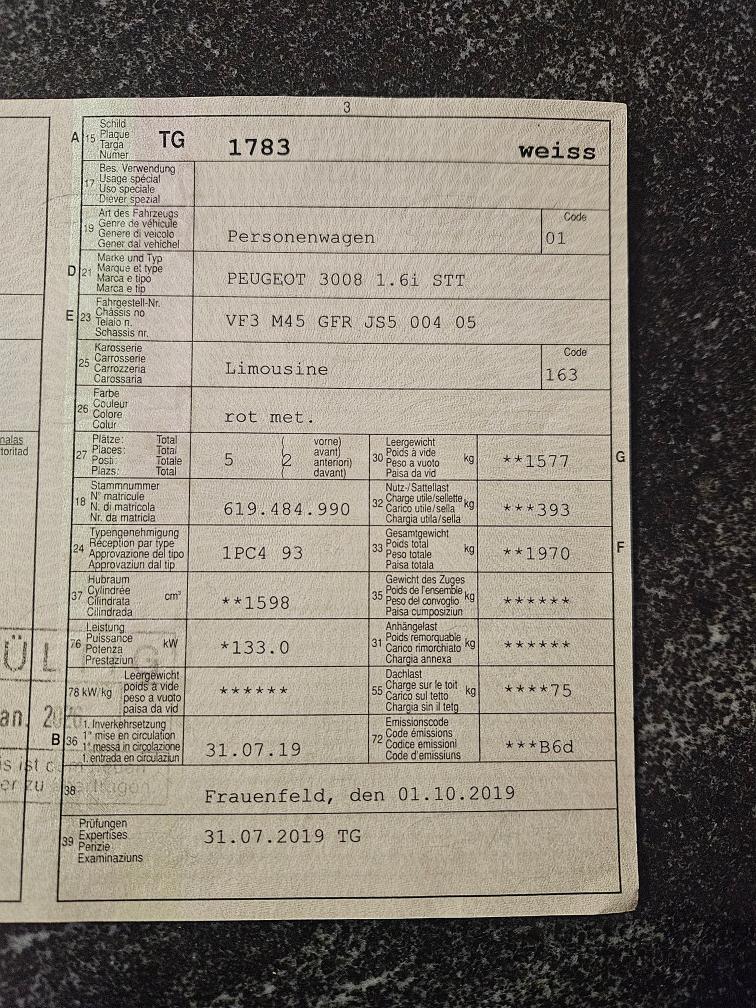 3
A 15 Schild
Plaque
Targa
Numer
TG 1783 weiss
17 Bes. Verwendung
Usage spécial
Uso speciale
Diever spezial
19 Art des Fahrzeugs
Genre de véhicule
Genere di veicolo
Gener dal vehichel
Personenwagen
Code
01
D 21 Marke und Typ
Marque et type
Marca e tipo
Marca e tip
PEUGEOT 3008 1.6i STT
E 23 Fahrgestell-Nr.
Châssis no
Telaio n.
Schassis nr.
VF3 M45 GFR JS5 004 05
25 Karosserie
Carrosserie
Carrozzeria
Carossaria
Limousine
Code
163
26 Farbe
Couleur
Colore
Colur
rot met.
27 Plätze: Total
Places: Total
Posti: Totale
Plazs: Total
5 ( 2 vorne)
avant)
anteriori)
davant)
30 Leergewicht
Poids à vide
Peso a vuoto
Paisa da vid
kg
**1577
G
18 Stammnummer
N° matricule
N. di matricola
Nr. da matricla
619.484.990
32 Nutz-/Sattellast
Charge utile/sellette
Carico utile/sella
Chargia utila/sella
kg
***393
24 Typengenehmigung
Réception par type
Approvazione del tipo
Approvaziun dal tip
1PC4 93
33 Gesamtgewicht
Poids total
Peso totale
Paisa totala
kg
**1970
F
37 Hubraum
Cylindrée
Cilindrata
Cilindrada
cm³
**1598
35 Gewicht des Zuges
Poids de l'ensemble
Peso del convoglio
Paisa cumposiziun
kg
******
76 Leistung
Puissance
Potenza
Prestaziun
kW
*133.0
31 Anhängelast
Poids remorquable
Carico rimorchiato
Chargia annexa
kg
******
78 kW/kg Leergewicht
poids à vide
peso a vuoto
paisa da vid
******
55 Dachlast
Charge sur le toit
Carico sul tetto
Chargia sin il tetg
kg
****75
B 36 1. Inverkehrsetzung
1re mise en circulation
1a messa in circolazione
1. entrada en circulaziun
31.07.19
72 Emissionscode
Code émissions
Codice emissioni
Code d'emissiuns
***B6d
38 Frauenfeld, den 01.10.2019
39 Prüfungen
Expertises
Perizie
Examinaziuns
31.07.2019 TG